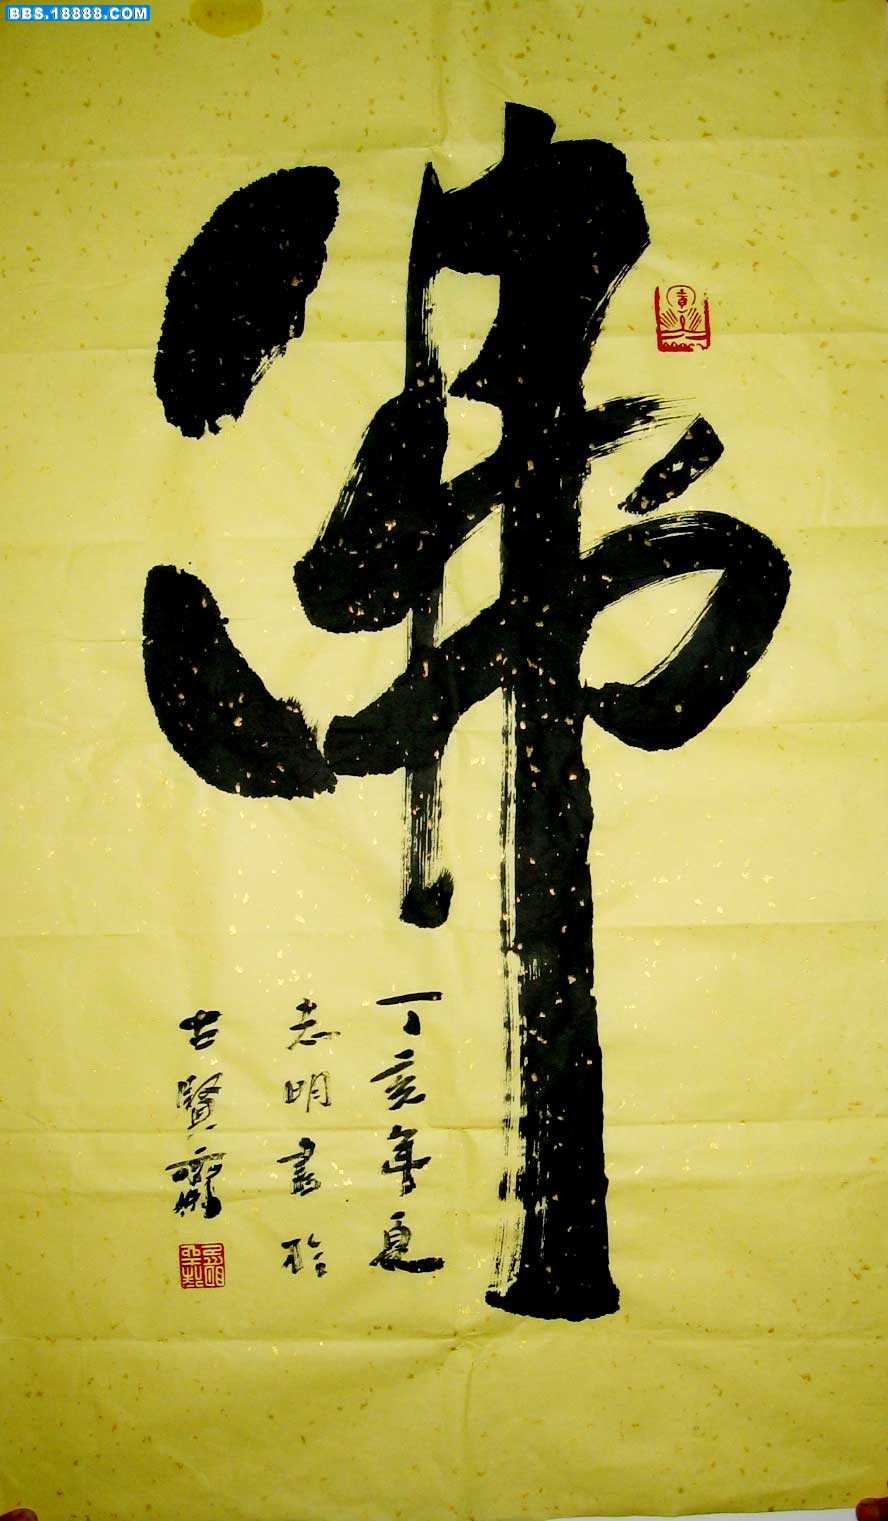 BBS.18888.COM
佛
丁亥年夏
志明書於
古賢齋